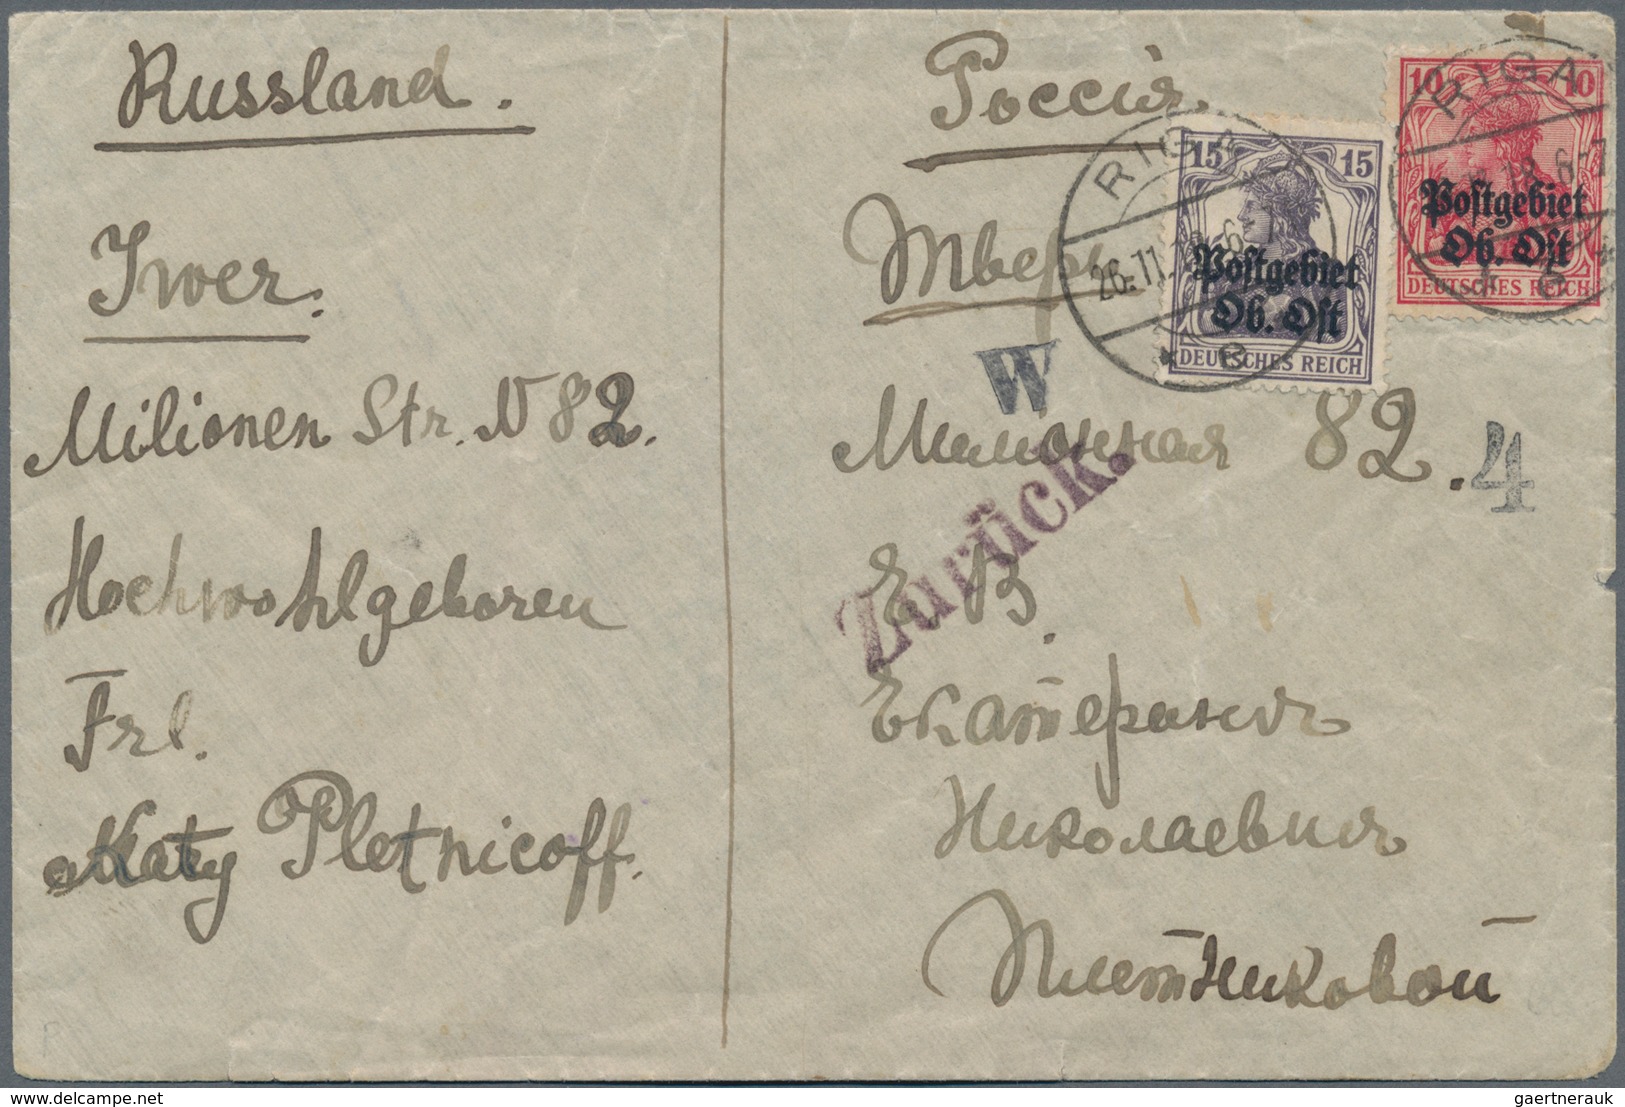 Russland.
Twer.
Milionen Str. N 82.
Hochwohlgeboren
Frl.
Katy Pletnicoff.
Россія
Тверь
Милионная 82.
Е В.
Екатеринѣ
Николаевнѣ
Плетниковой
W
4
Zurück.
RIGA
26.11.
15 15
Postgebiet
Ob. Ost
DEUTSCHES REICH
RIGA
10 10
Postgebiet
Ob. Ost
DEUTSCHES REICH
P
gaertnerauk